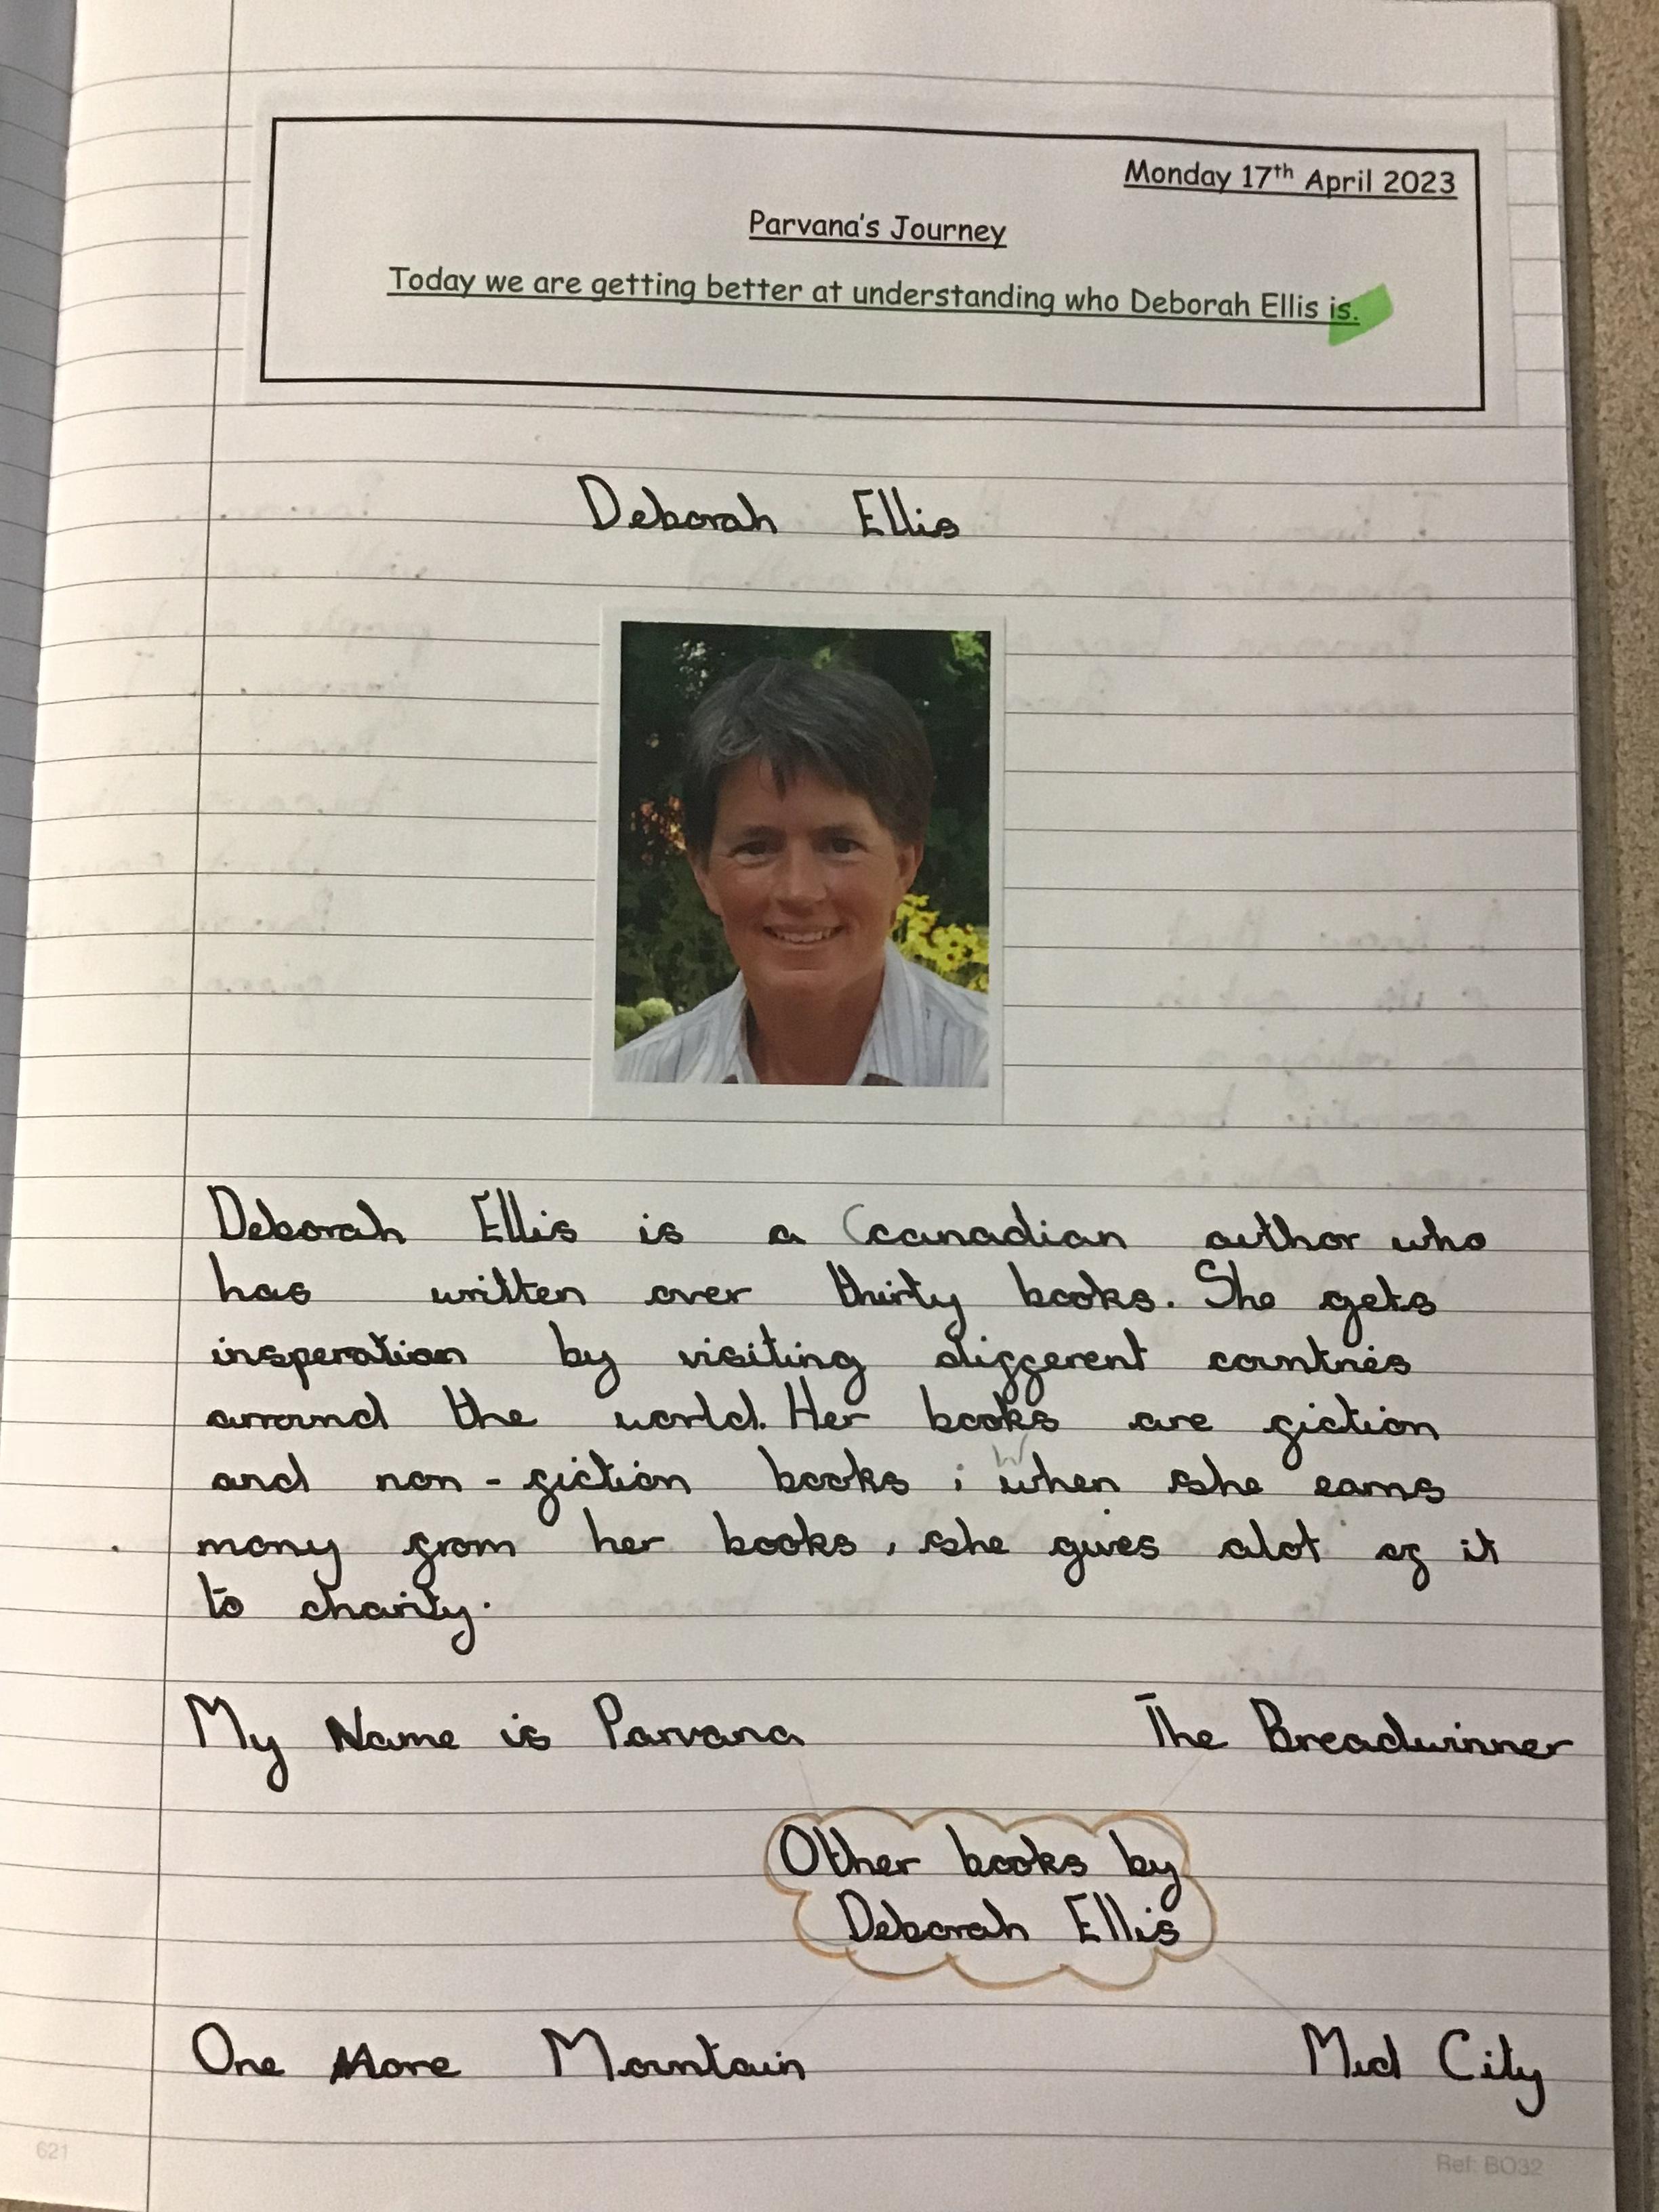 Monday 17th April 2023
Parvana's Journey
Today we are getting better at understanding who Deborah Ellis is.
Deborah Ellis
Deborah Ellis is a Canadian author who
has written over thirty books. She gets
insperation by visiting different countries
arround the world. Her books are fiction
and non-fiction books ; when she earns
mony from her books, she gives alot of it
to charity.
My Name is Parvana
The Breadwinner
Other books by
Deborah Ellis
One More Mountain
Mud City
621
Ref: BO32